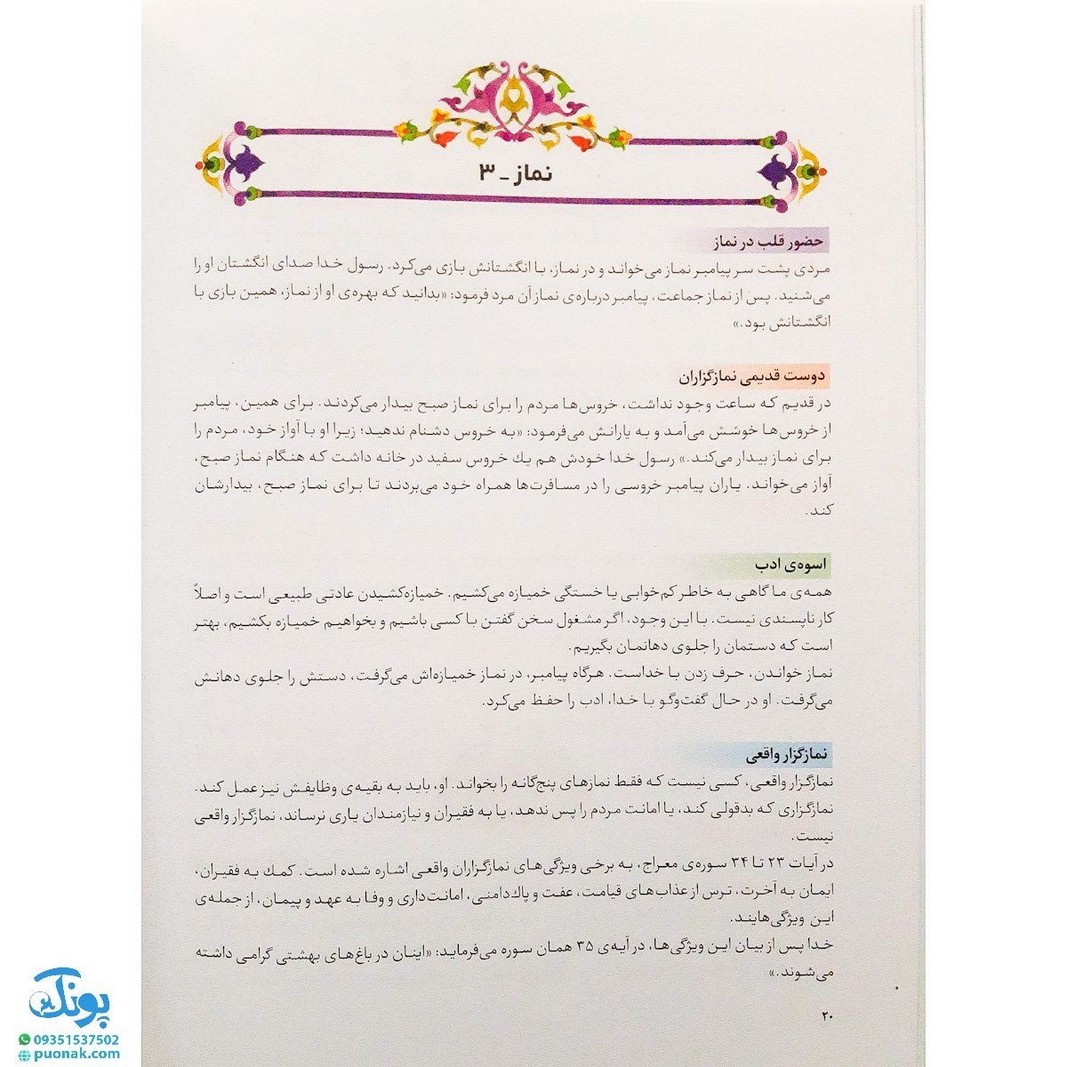 نماز ـ ۳
حضور قلب در نماز
مردی پشت سر پیامبر نماز می‌خواند و در نماز، با انگشتانش بازی می‌کرد. رسول خدا صدای انگشتان او را
می‌شنید. پس از نماز جماعت، پیامبر درباره‌ی نماز آن مرد فرمود: «بدانید که بهره‌ی او از نماز، همین بازی با
انگشتانش بود.»
دوست قدیمی نمازگزاران
در قدیم که ساعت وجود نداشت، خروس‌ها مردم را برای نماز صبح بیدار می‌کردند. برای همین، پیامبر
از خروس‌ها خوشش می‌آمد و به یارانش می‌فرمود: «به خروس دشنام ندهید؛ زیرا او با آواز خود، مردم را
برای نماز بیدار می‌کند.» رسول خدا خودش هم یك خروس سفید در خانه داشت که هنگام نماز صبح،
آواز می‌خواند. یاران پیامبر خروسی را در مسافرت‌ها همراه خود می‌بردند تا برای نماز صبح، بیدارشان
کند.
اسوه‌ی ادب
همه‌ی ما گاهی به خاطر کم‌خوابی یا خستگی خمیازه می‌کشیم. خمیازه‌کشیدن عادتی طبیعی است و اصلاً
کار ناپسندی نیست. با این وجود، اگر مشغول سخن گفتن با کسی باشیم و بخواهیم خمیازه بکشیم، بهتر
است که دستمان را جلوی دهانمان بگیریم.
نماز خواندن، حرف زدن با خداست. هرگاه پیامبر، در نماز خمیازه‌اش می‌گرفت، دستش را جلوی دهانش
می‌گرفت. او در حال گفت‌وگو با خدا، ادب را حفظ می‌کرد.
نمازگزار واقعی
نمازگزار واقعی، کسی نیست که فقط نمازهای پنج‌گانه را بخواند. او، باید به بقیه‌ی وظایفش نیز عمل کند.
نمازگزاری که بدقولی کند، یا امانت مردم را پس ندهد، یا به فقیران و نیازمندان یاری نرساند، نمازگزار واقعی
نیست.
در آیات ۲۳ تا ۳۴ سوره‌ی معراج، به برخی ویژگی‌های نمازگزاران واقعی اشاره شده است. کمك به فقیران،
ایمان به آخرت، ترس از عذاب‌های قیامت، عفت و پاك‌دامنی، امانت‌داری و وفا به عهد و پیمان، از جمله‌ی
این ویژگی‌هایند.
خدا پس از بیان این ویژگی‌ها، در آیه‌ی ۳۵ همان سوره می‌فرماید: «اینان در باغ‌های بهشتی گرامی داشته
می‌شوند.»
۲۰
پونک
09351537502
puonak.com